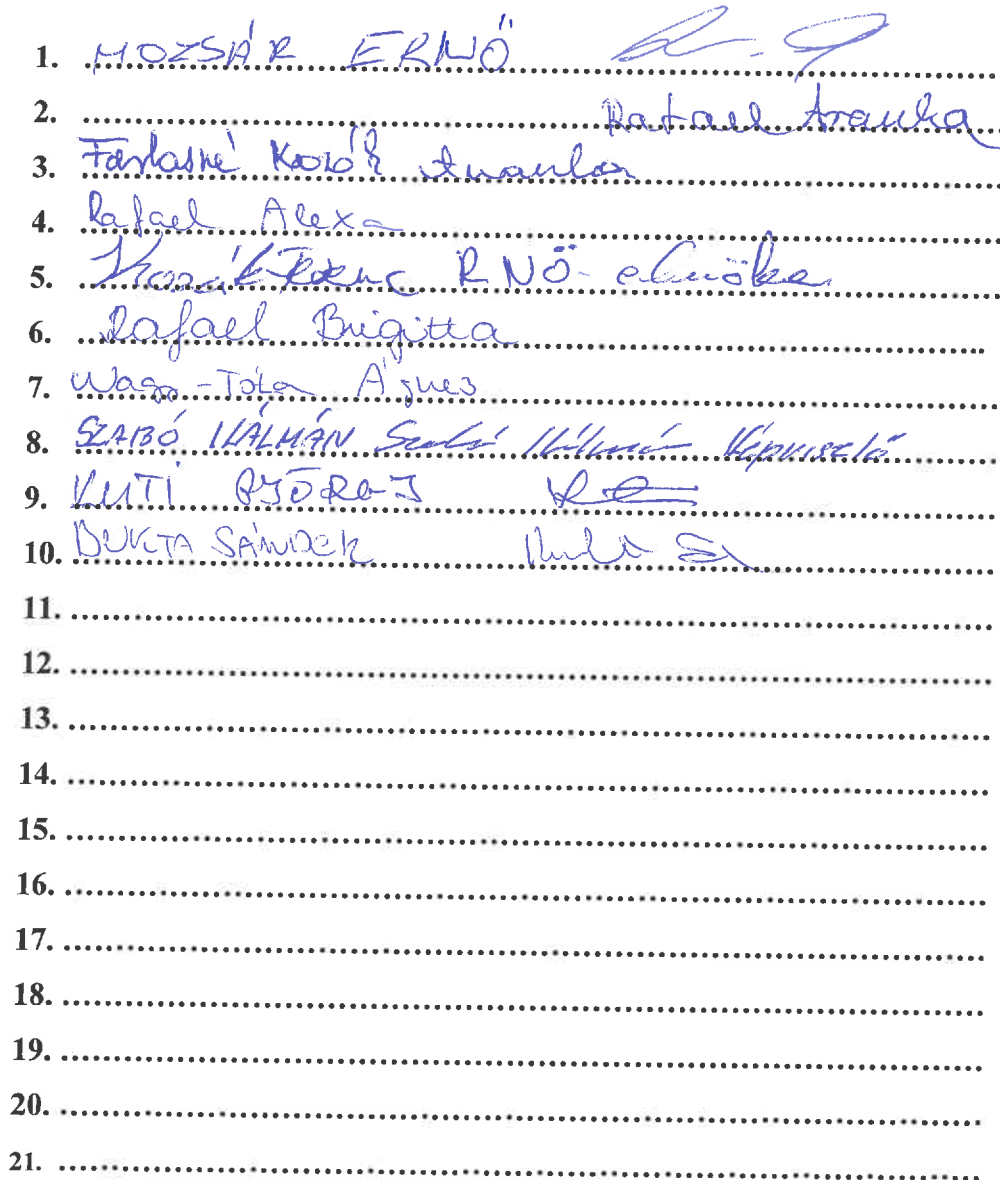 1. MOZSÁR ERNŐ
2. Rafael Aranka
3. Farkasné Kozák
4. Rafael Alexa
5. Kozák Ferenc RNÖ-elnöke
6. Rafael Brigitta
7. Ágnes
8. SZABÓ KÁLMÁN Szabó Kálmán Képviselő
9. KUTI GYÖRGY
10. BUKTA SÁNDOR
11.
12.
13.
14.
15.
16.
17.
18.
19.
20.
21.